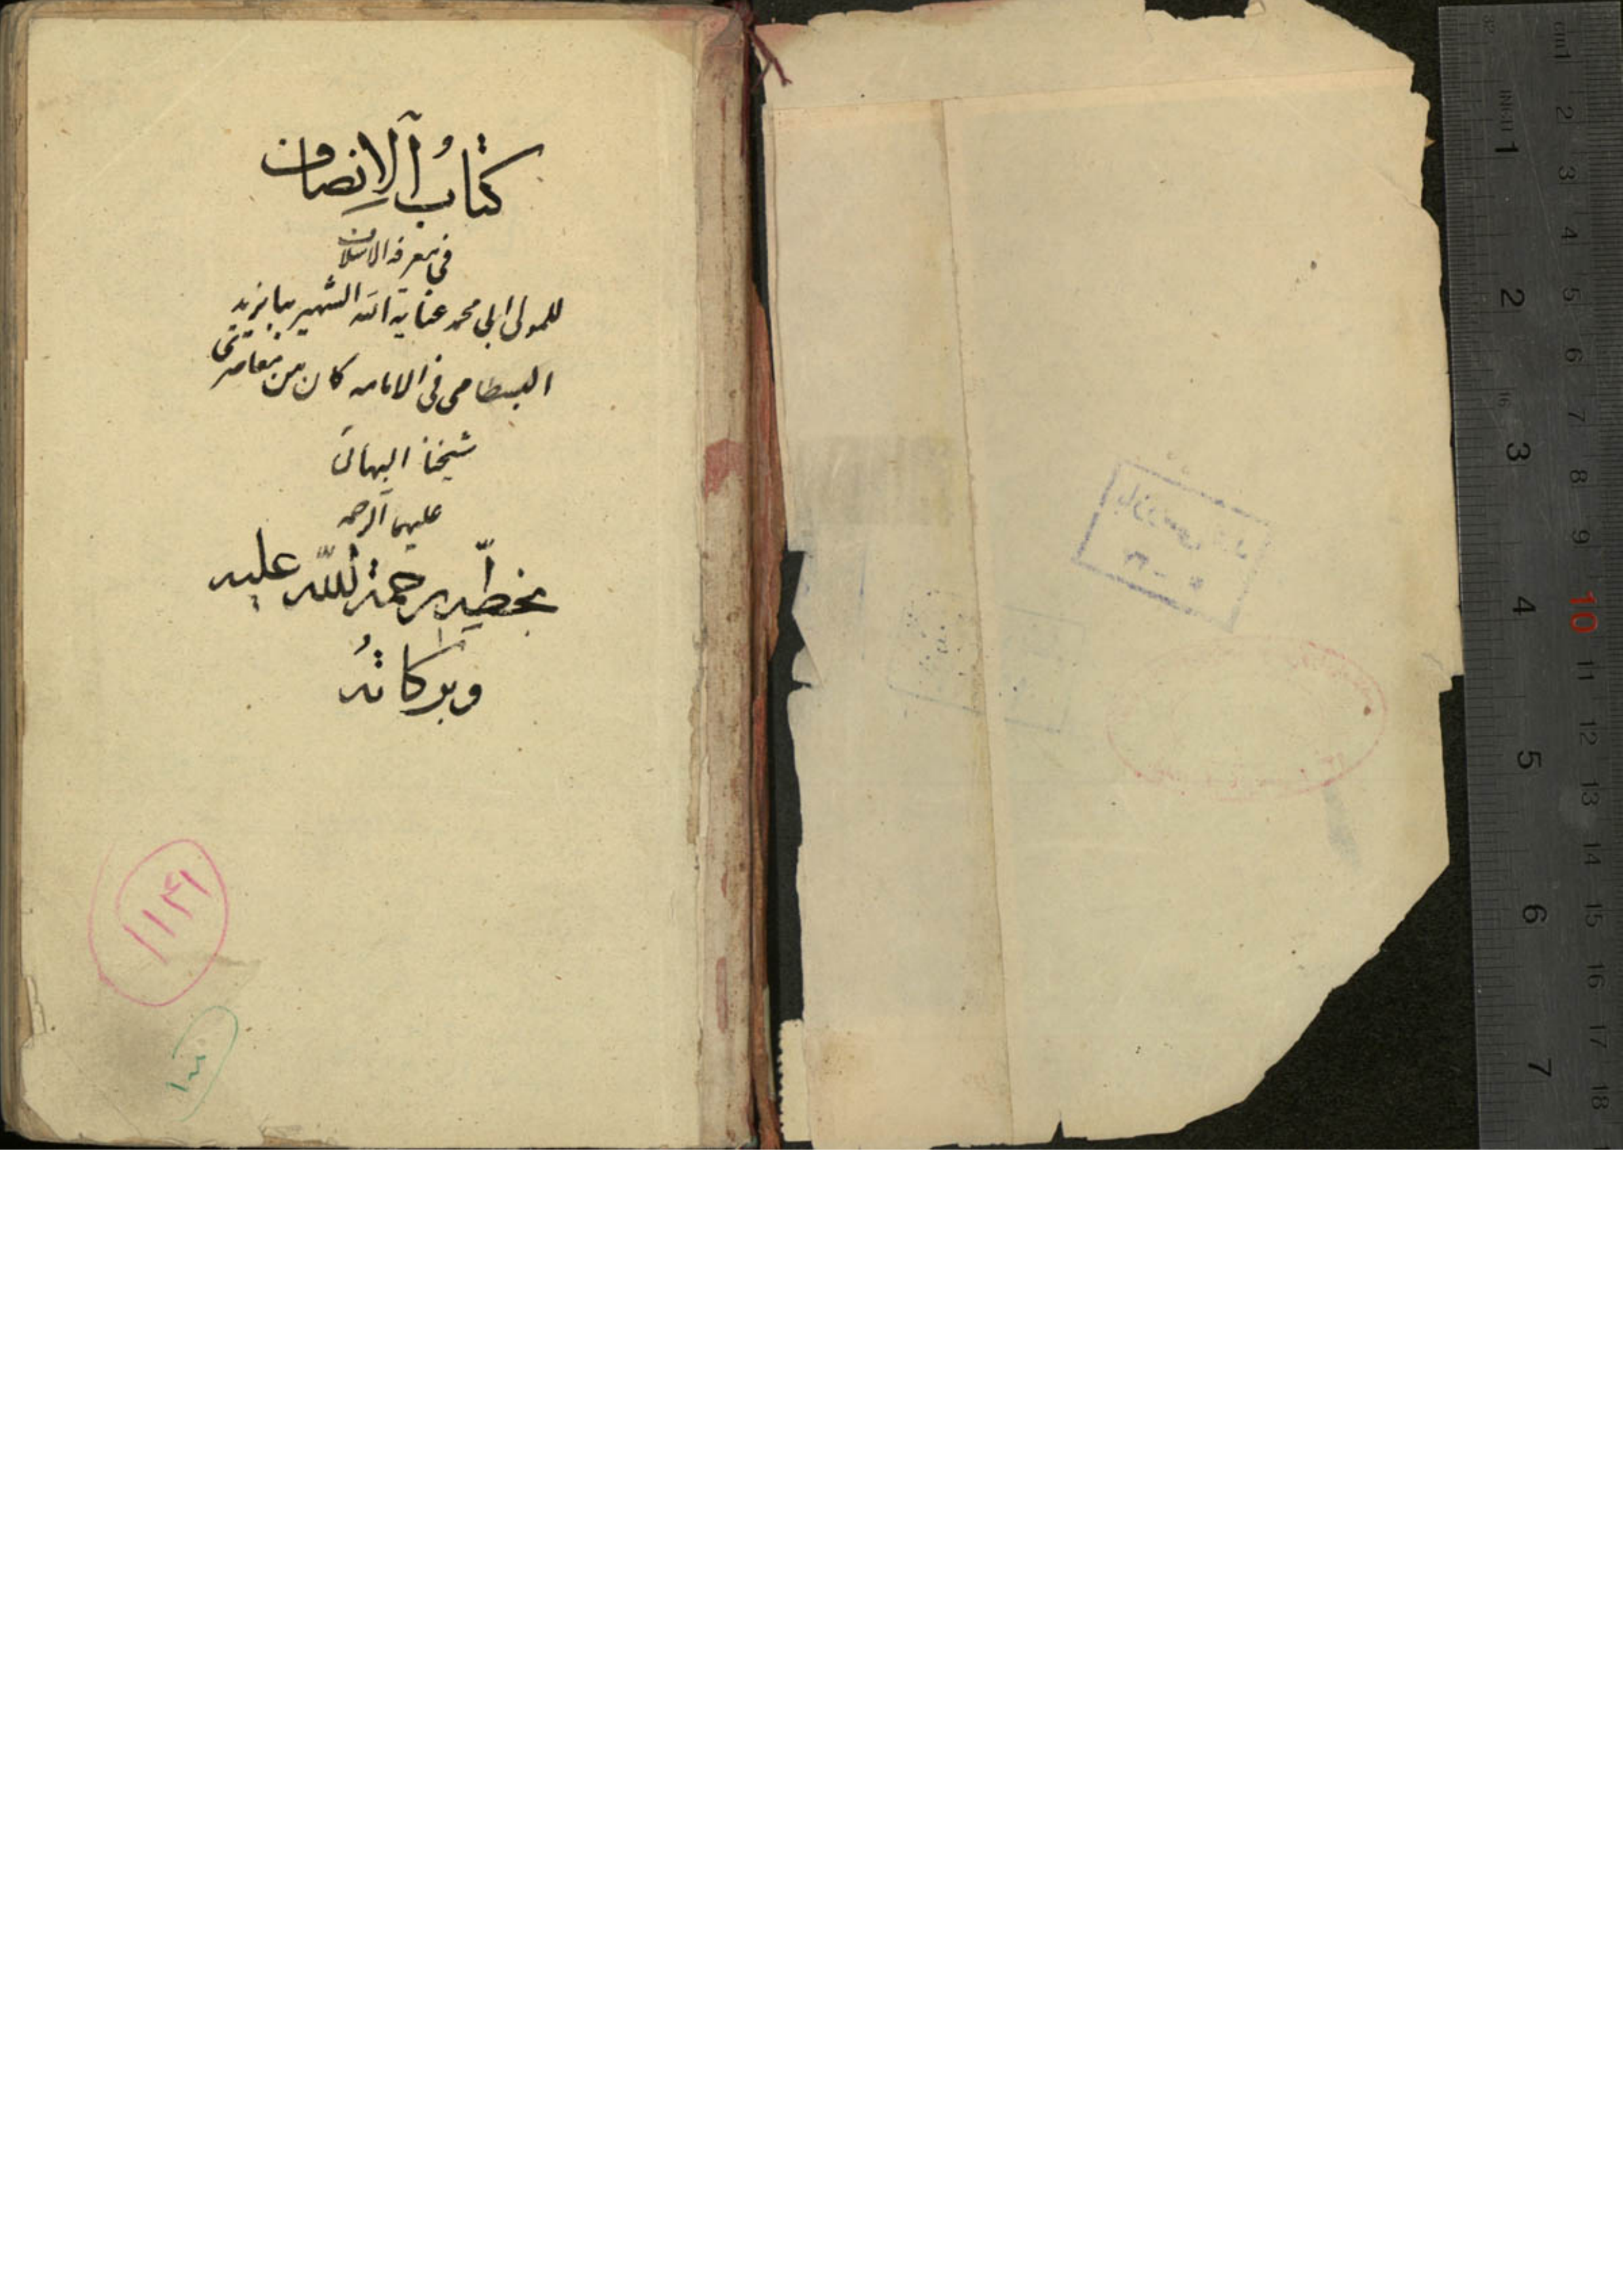 كتابُ الإنصاف
في معرفة الاسلاف
للمولى ابي محمد عناية الله الشهير ببايزيد
البسطامي في الامامه كان من معاصري
شيخنا البهائي
عليهما الرحمه
بخطه رحمة الله عليه
وبركاتهُ
١١٣١